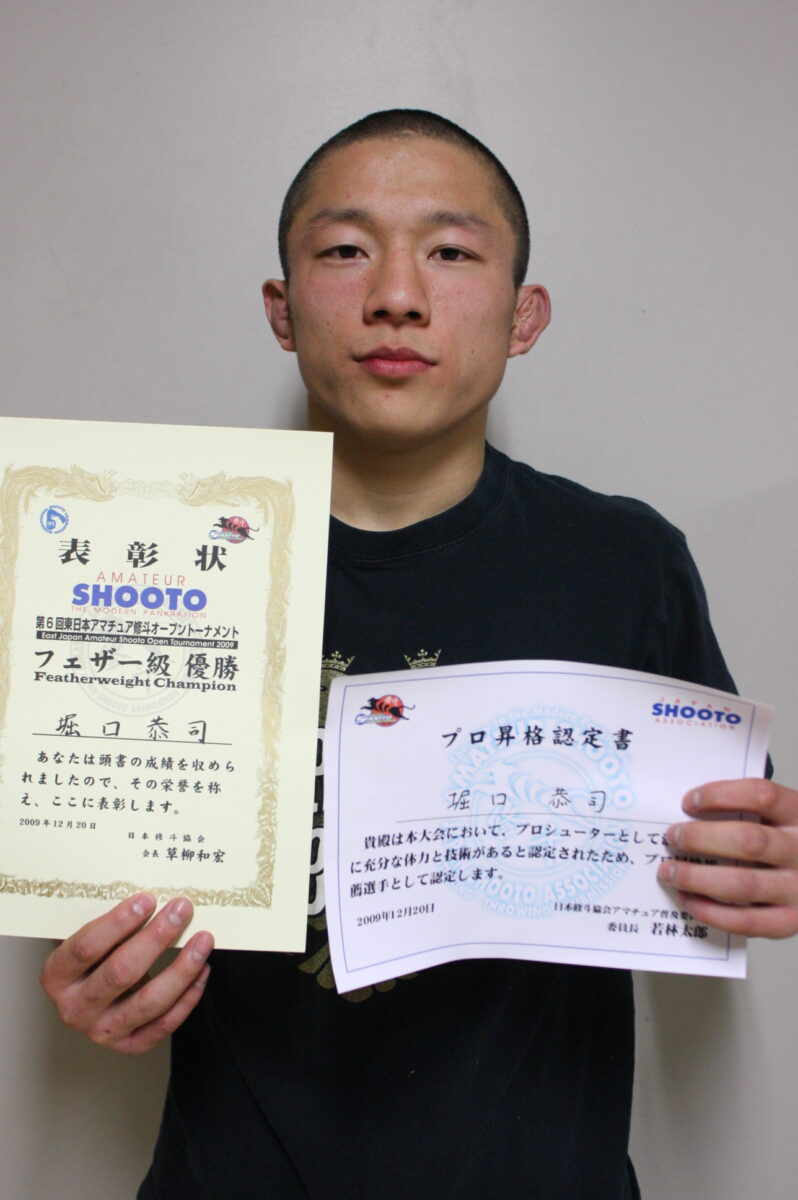 表彰状
AMATEUR
SHOOTO
THE MODERN PANKRATION
第6回東日本アマチュア修斗オープントーナメント
East Japan Amateur Shooto Open Tournament 2009
フェザー級 優勝
Featherweight Champion
堀口恭司
あなたは頭書の成績を収めら
れましたので、その栄誉を称
え、ここに表彰します。
2009年12月20日
日本修斗協会
会長 草柳和宏
JAPAN
SHOOTO
ASSOCIATION
プロ昇格認定書
堀口 恭司
貴殿は本大会において、プロシューターとして
に充分な体力と技術があると認定されたため、プロ
薦選手として認定します。
2009年12月20日
日本修斗協会アマチュア普及委
委員長 若林太郎